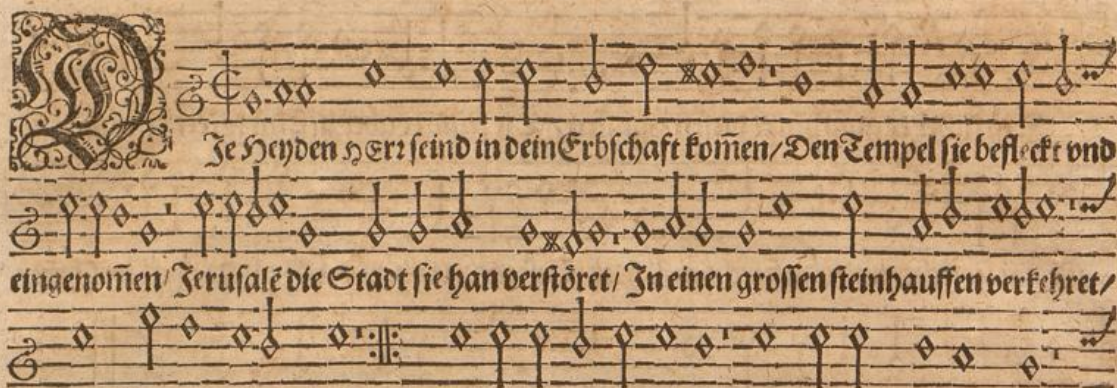 DJe Heyden HErr seind in dein Erbschaft kom̃en/Den Tempel sie befleckt vnd
eingenom̃en/Jerusalẽ die Stadt sie han verstöret/ Jn einen grossen steinhauffen verkehret/